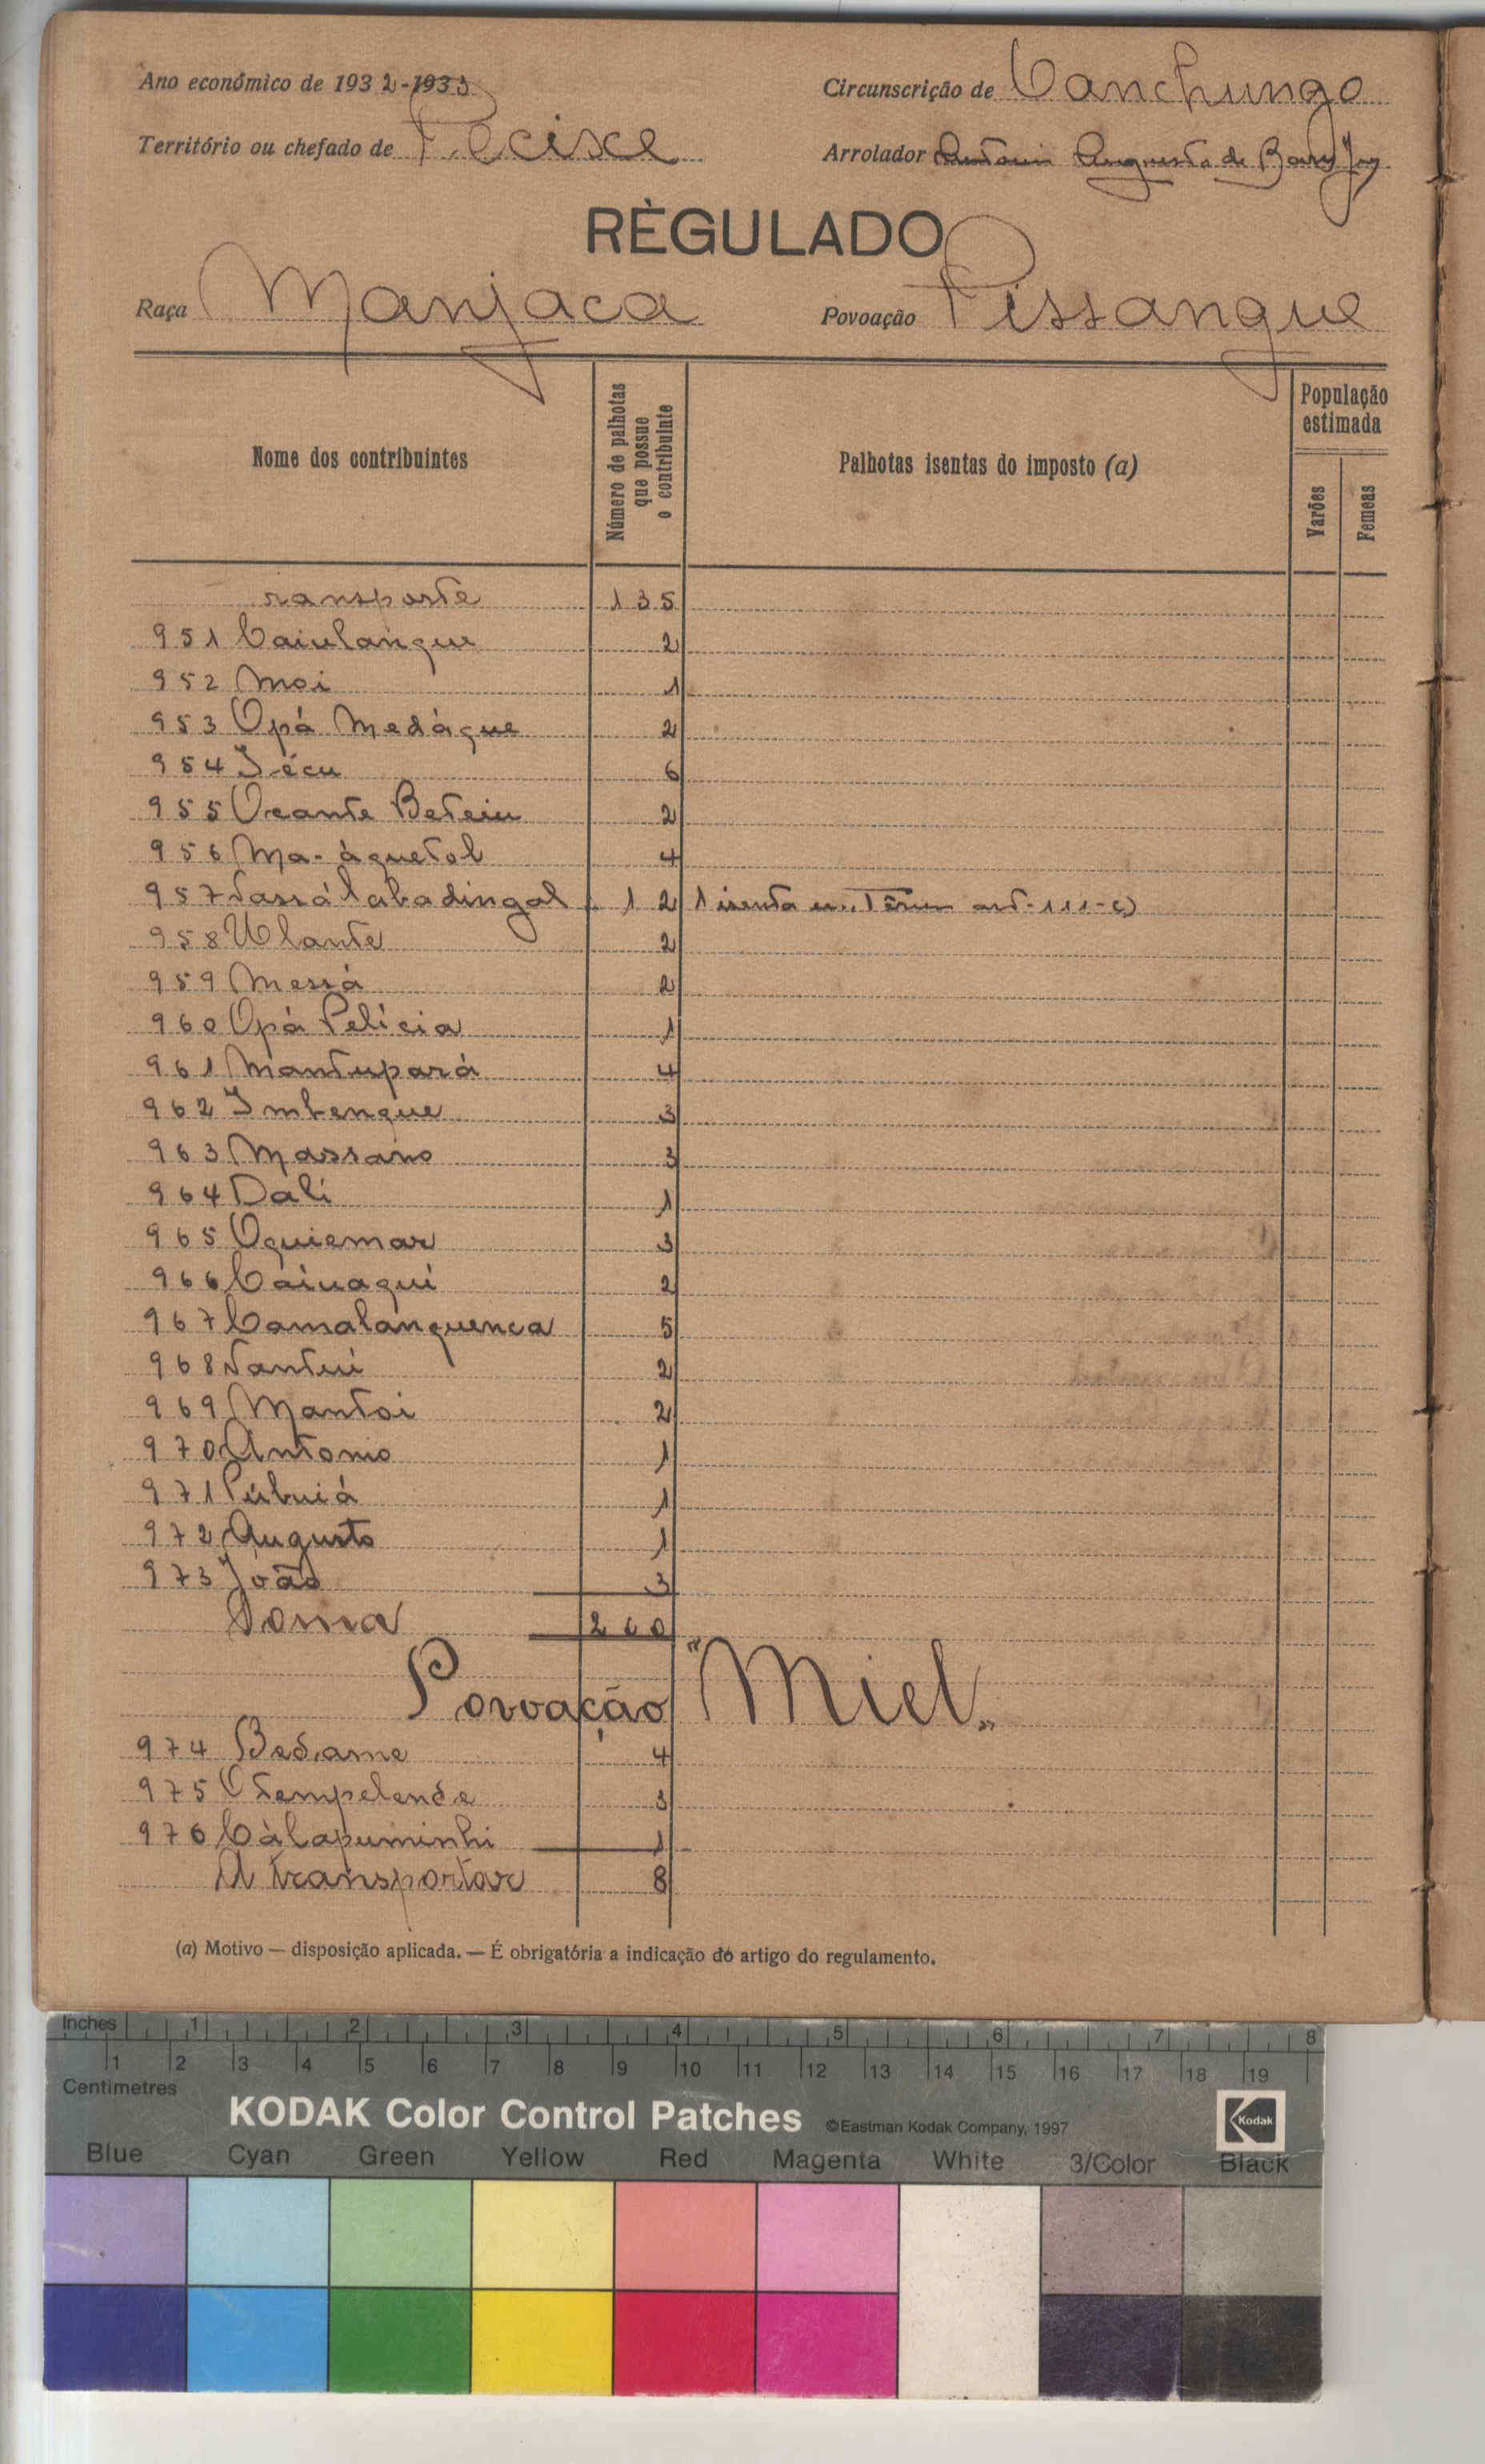 Ano económico de 1932-1933
Circunscrição de Canchungo
Território ou chefado de Pecixe
Arrolador Antonio Augusto de
RÈGULADO
Raça Manjaca
Povoação Pissangue
Nome dos contribuintes
Número de palhotas que possue o contribuinte
Palhotas isentas do imposto (a)
População estimada
Varões
Femeas
ransporte 135
951 Caiulangue 2
952 Moi 1
953 Opá Medágue 2
954 Jécu 6
955 Ocante Beteiu 2
956 Ma-áquetol 4
957 12 1 isenta art-111-c)
958 Ulante 2
959 Messá 2
960 Opá Pelicia 1
961 Mantupará 4
962 Imbengue 3
963 Massano 3
964 Dali 1
965 Oquiemar 3
966 Cáiuaqui 2
967 Camalanquenca 5
968 Nantui 2
969 Mantoi 2
970 Antonio 1
971 Púbuiá 1
972 Augusto 1
973 João 3
Soma 260
Povoação "Miel"
974 Bedame 4
975 Otempelende 3
976 Càlapuminhi 1
A transportar 8
(a) Motivo — disposição aplicada. — É obrigatória a indicação do artigo do regulamento.
Inches 1 2 3 4 5 6 7 8
1 2 3 4 5 6 7 8 9 10 11 12 13 14 15 16 17 18 19
Centimetres
KODAK Color Control Patches ©Eastman Kodak Company, 1997 Kodak
Blue Cyan Green Yellow Red Magenta White 3/Color Black